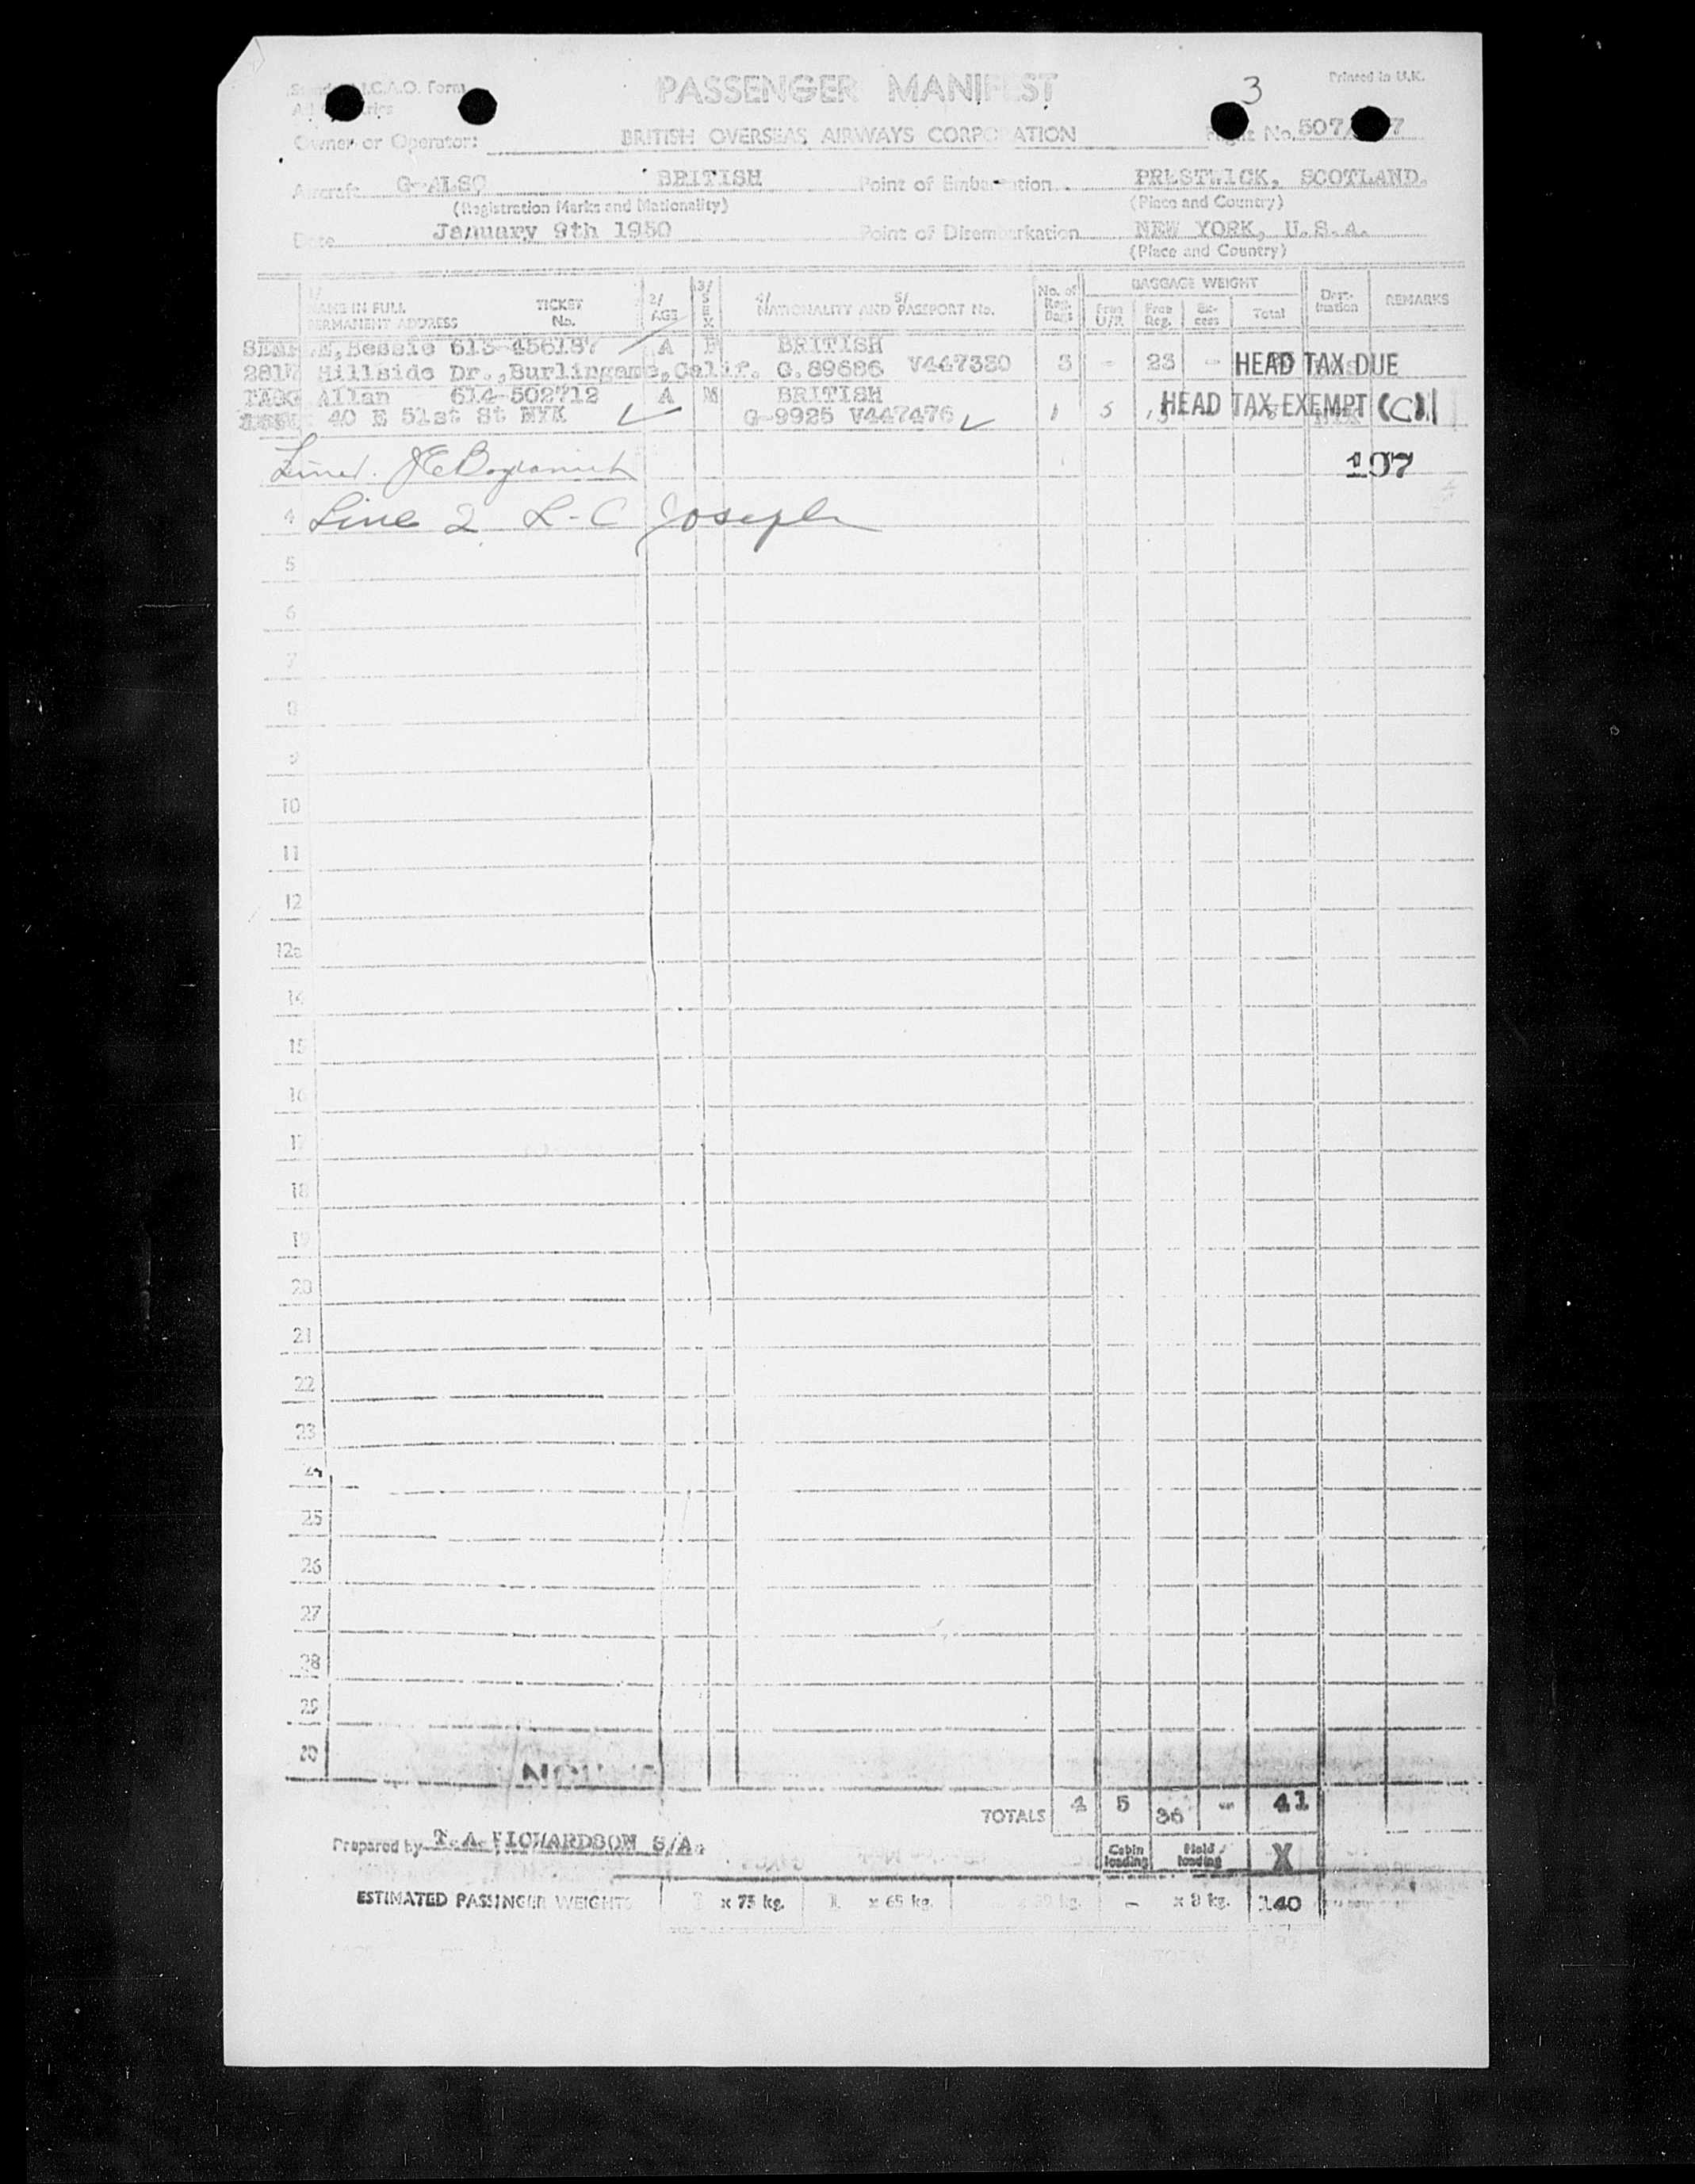 PASSENGER MANIFEST 3 Printed in U.K.
I.C.A.O. Form
Owner or Operator: BRITISH OVERSEAS AIRWAYS CORPORATION No. 507/
Aircraft G-ALSC BRITISH Point of Embarkation PRESTWICK, SCOTLAND.
(Registration Marks and Nationality) (Place and Country)
Date January 9th 1950 Point of Disembarkation NEW YORK, U.S.A.
(Place and Country)
1/ NAME IN FULL PERMANENT ADDRESS TICKET No. 2/ AGE 3/ SEX 4/ 5/ NATIONALITY AND PASSPORT No. No. of BAGGAGE WEIGHT Free U/R. Free Reg. Ex-cess Total Dest-ination REMARKS
Bessie 613-456187 A F BRITISH
2817 Hillside Dr., Burlingame, Calif. G.89686 V447330 3 - 23 - HEAD TAX DUE
Allan 614-502712 A M BRITISH
40 E 51st St NYK G-9925 V447476 1 5 HEAD TAX EXEMPT (C)
107
4 Line 2 L-C Joseph
5
6
7
8
9
10
11
12
12a
14
15
16
17
18
19
20
21
22
23
24
25
26
27
28
29
30
TOTALS 4 5 36 - 41
Prepared by T.A. RICHARDSON S/A. Cabin loading Hold loading X
ESTIMATED PASSENGER WEIGHTS x 75 kg. 1 x 65 kg. - x 8 kg. 140